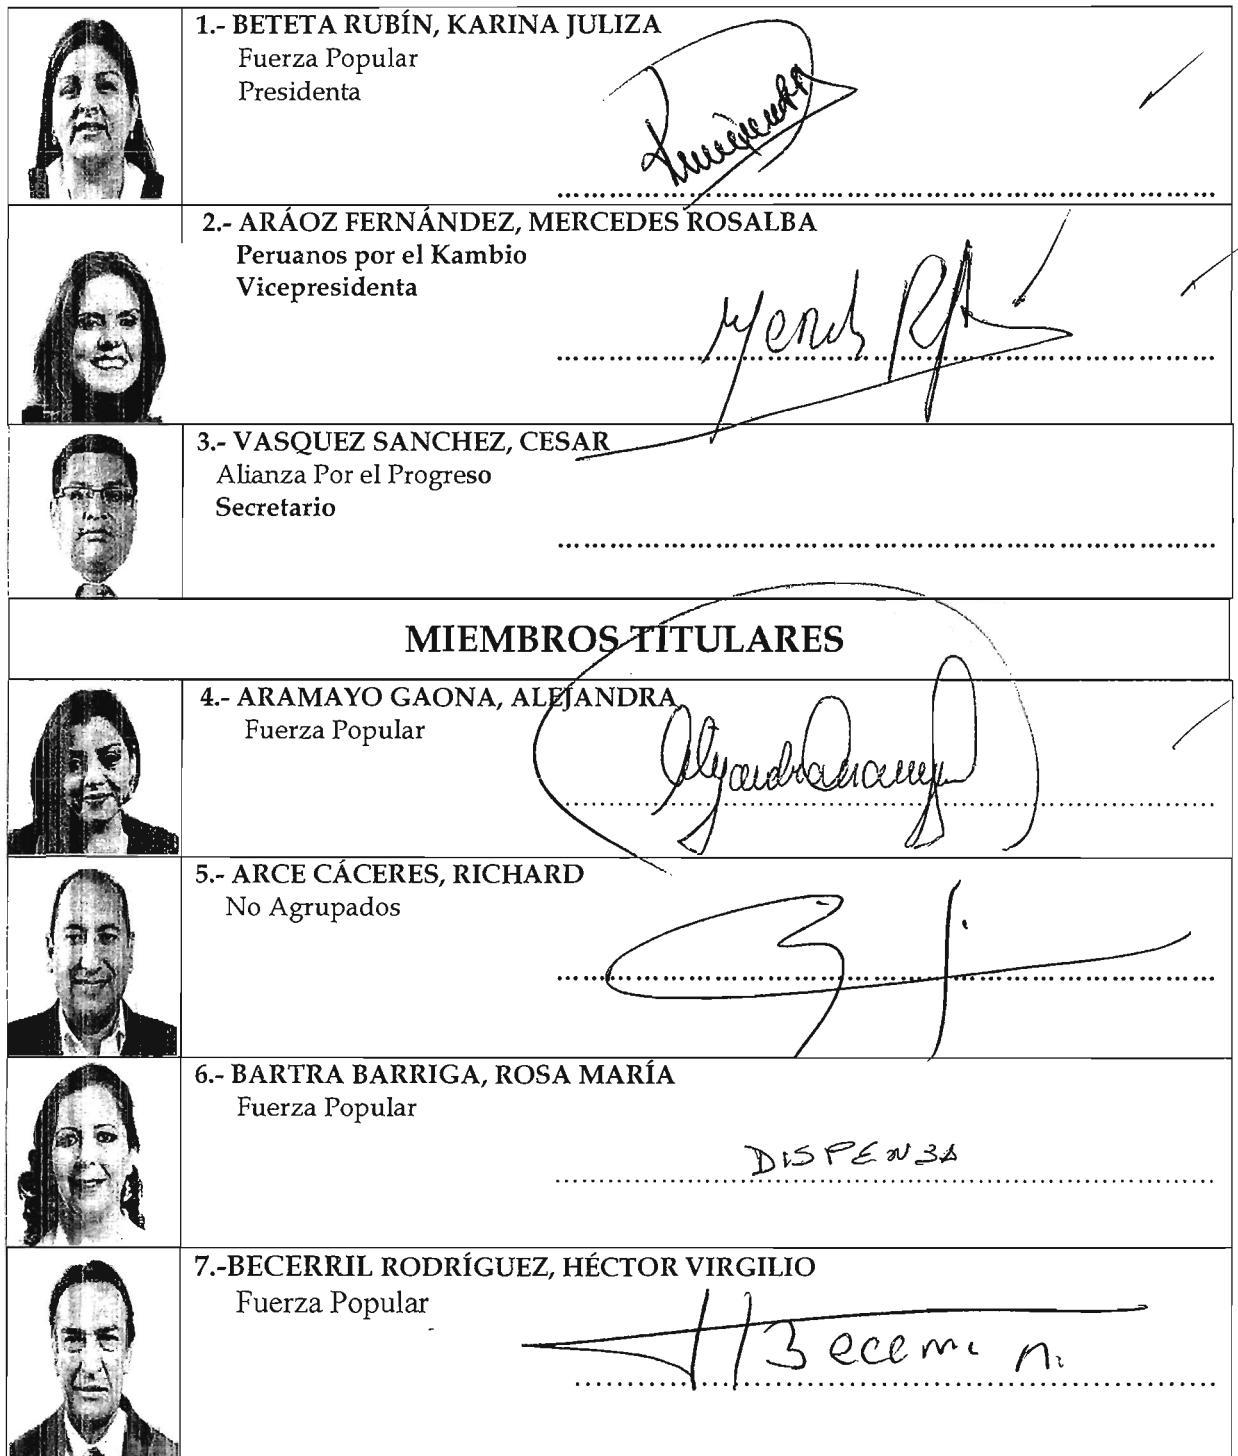 1.- BETETA RUBÍN, KARINA JULIZA
Fuerza Popular
Presidenta
2.- ARÁOZ FERNÁNDEZ, MERCEDES ROSALBA
Peruanos por el Kambio
Vicepresidenta
3.- VASQUEZ SANCHEZ, CESAR
Alianza Por el Progreso
Secretario
MIEMBROS TITULARES
4.- ARAMAYO GAONA, ALEJANDRA
Fuerza Popular
5.- ARCE CÁCERES, RICHARD
No Agrupados
6.- BARTRA BARRIGA, ROSA MARÍA
Fuerza Popular
DISPENSA
7.-BECERRIL RODRÍGUEZ, HÉCTOR VIRGILIO
Fuerza Popular